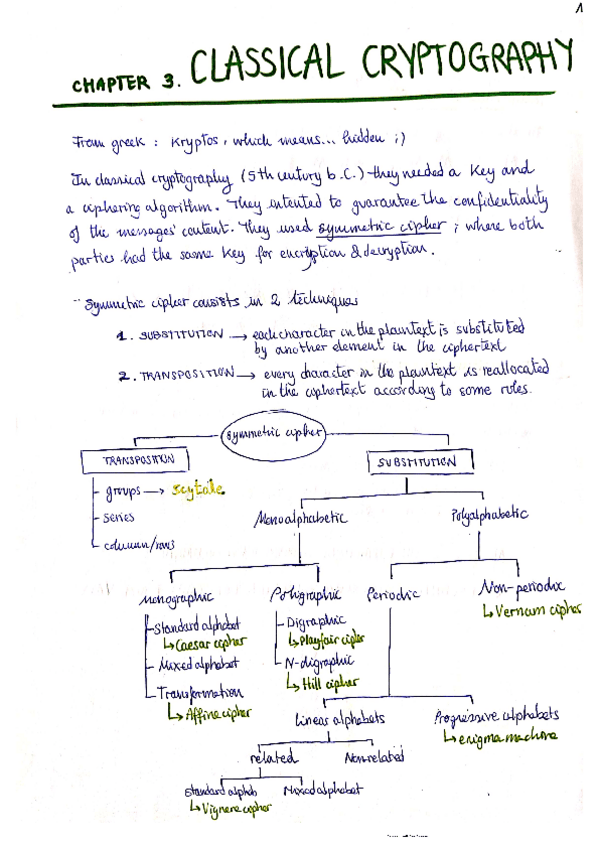 1
CHAPTER 3. CLASSICAL CRYPTOGRAPHY
From greek : Kryptos, which means... hidden ;)
In classical cryptography (5th century b.C.) they needed a key and
a ciphering algorithm. They intented to guarantee the confidentiality
of the messages' content. They used symmetric cipher ; where both
parties had the same key for encryption & decryption.
Symmetric cipher consists in 2 techniques
1. SUBSTITUTION → each character in the plaintext is substituted
by another element in the ciphertext
2. TRANSPOSITION → every character in the plaintext is reallocated
in the ciphertext according to some rules.
symmetric cipher
TRANSPOSITION
SUBSTITUTION
groups → scytale
series
column/rows
Monoalphabetic
Polyalphabetic
Monographic
Poligraphic
Periodic
Non-periodic
↳ Vernam cipher
Standard alphabet
↳ Caesar cipher
Mixed alphabet
Transformation
↳ Affine cipher
Digraphic
↳ Playfair cipher
N-digraphic
↳ Hill cipher
Linear alphabets
Progressive alphabets
↳ enigma machine
related
Non-related
Standard alphab
↳ Vignere cipher
Mixed alphabet